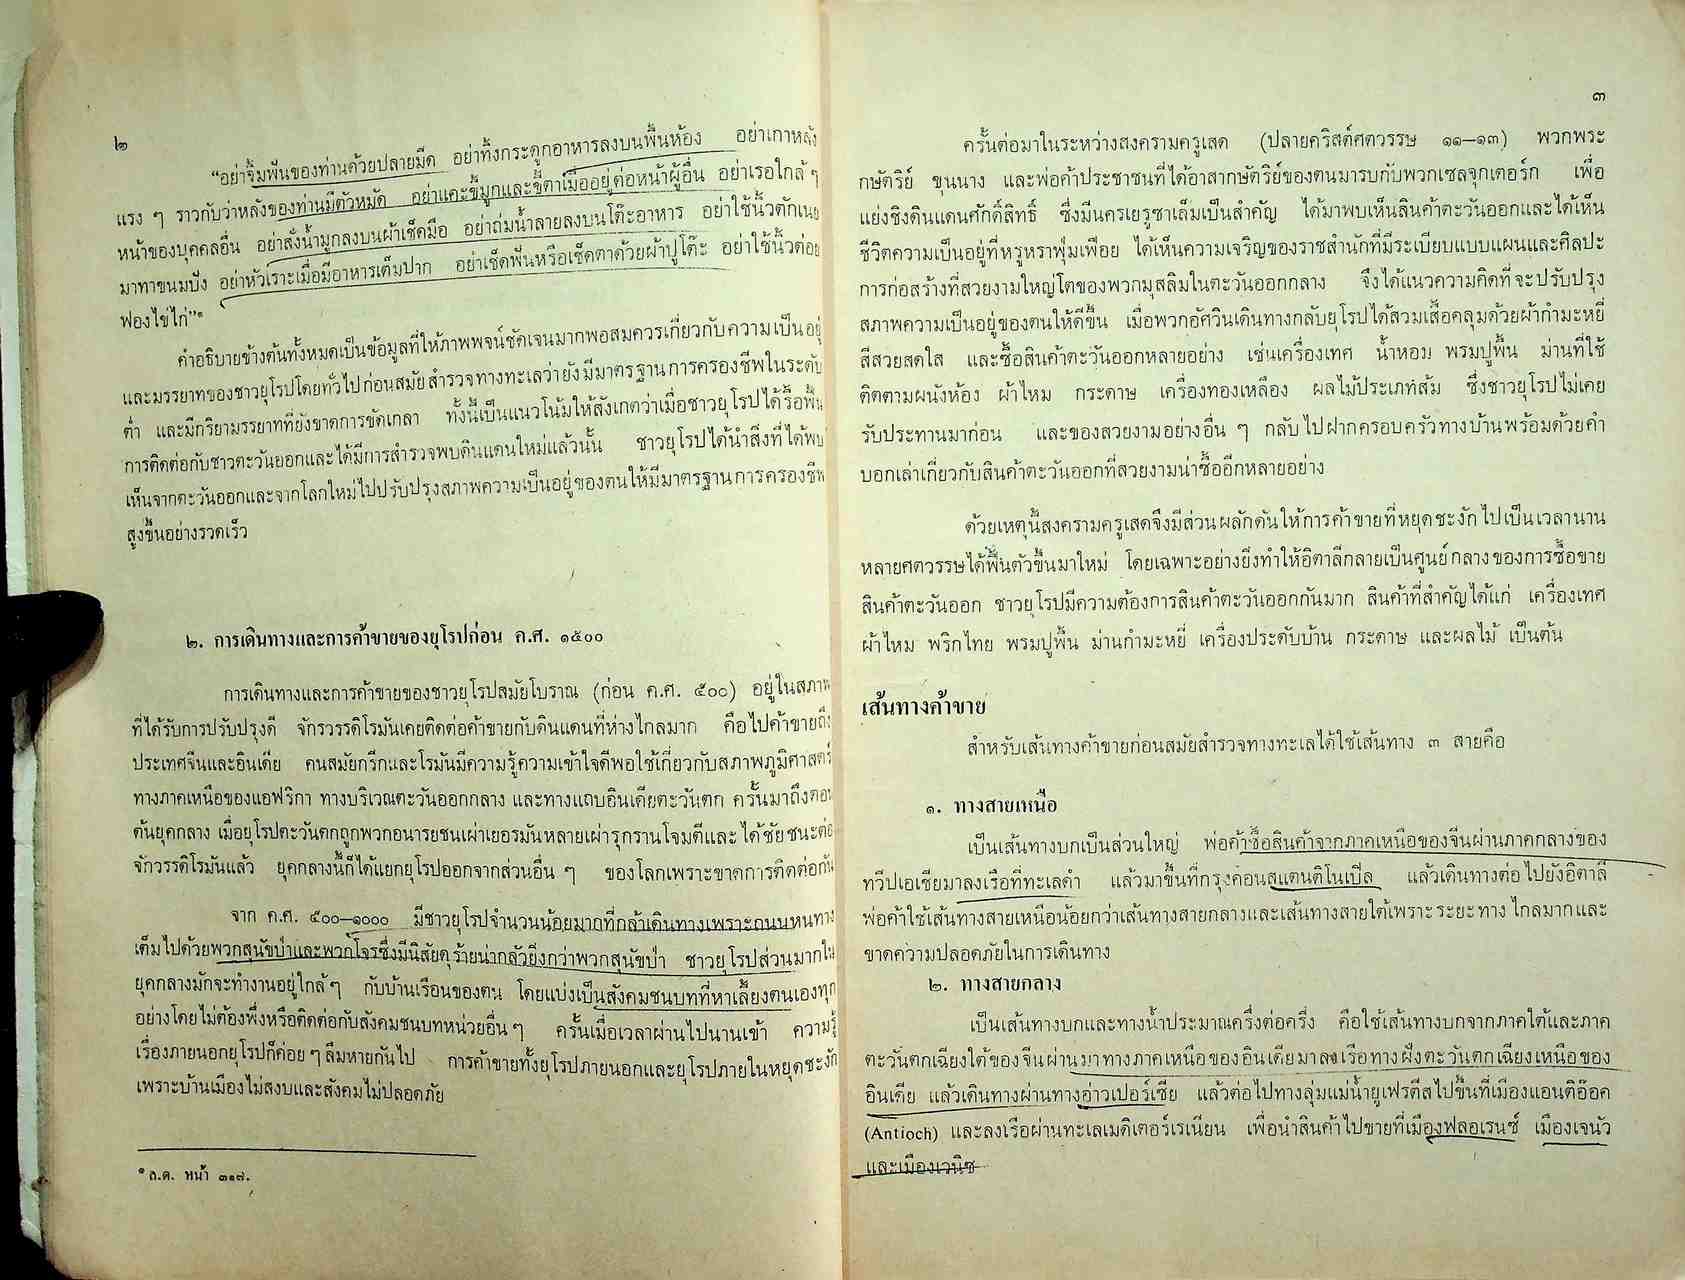 ๒
“อย่าจิ้มฟันของท่านด้วยปลายมีด อย่าทิ้งกระดูกอาหารลงบนพื้นห้อง อย่าเกาหลัง
แรง ๆ ราวกับว่าหลังของท่านมีตัวหมัด อย่าแคะขี้มูกและขี้ตาเมื่ออยู่ต่อหน้าผู้อื่น อย่าเรอใกล้ ๆ
หน้าของบุคคลอื่น อย่าสั่งน้ำมูกลงบนผ้าเช็ดมือ อย่าถ่มน้ำลายลงบนโต๊ะอาหาร อย่าใช้นิ้วตักเนย
มาทาขนมปัง อย่าหัวเราะเมื่อมีอาหารเต็มปาก อย่าเช็ดฟันหรือเช็ดตาด้วยผ้าปูโต๊ะ อย่าใช้นิ้วต่อย
ฟองไข่ไก่”๑
คำอธิบายข้างต้นทั้งหมดเป็นข้อมูลที่ให้ภาพพจน์ชัดเจนมากพอสมควรเกี่ยวกับความเป็นอยู่
และมรรยาทของชาวยุโรปโดยทั่วไปก่อนสมัยสำรวจทางทะเลว่ายังมีมาตรฐานการครองชีพในระดับ
ต่ำ และมีกริยามรรยาทที่ยังขาดการขัดเกลา ทั้งนี้เป็นแนวโน้มให้สังเกตว่าเมื่อชาวยุโรปได้รื้อฟื้น
การติดต่อกับชาวตะวันออกและได้มีการสำรวจพบดินแดนใหม่แล้วนั้น ชาวยุโรปได้นำสิ่งที่ได้พบ
เห็นจากตะวันออกและจากโลกใหม่ไปปรับปรุงสภาพความเป็นอยู่ของตนให้มีมาตรฐานการครองชีพ
สูงขึ้นอย่างรวดเร็ว
๒. การเดินทางและการค้าขายของยุโรปก่อน ค.ศ. ๑๕๐๐
การเดินทางและการค้าขายของชาวยุโรปสมัยโบราณ (ก่อน ค.ศ. ๕๐๐) อยู่ในสภาพ
ที่ได้รับการปรับปรุงดี จักรวรรดิโรมันเคยติดต่อค้าขายกับดินแดนที่ห่างไกลมาก คือไปค้าขายถึง
ประเทศจีนและอินเดีย คนสมัยกรีกและโรมันมีความรู้ความเข้าใจดีพอใช้เกี่ยวกับสภาพภูมิศาสตร์
ทางภาคเหนือของแอฟริกา ทางบริเวณตะวันออกกลาง และทางแถบอินเดียตะวันตก ครั้นมาถึงตอน
ต้นยุคกลาง เมื่อยุโรปตะวันตกถูกพวกอนารยชนเผ่าเยอรมันหลายเผ่ารุกรานโจมตีและได้ชัยชนะต่อ
จักวรรดิโรมันแล้ว ยุคกลางนี้ก็ได้แยกยุโรปออกจากส่วนอื่น ๆ ของโลกเพราะขาดการติดต่อกัน
จาก ค.ศ. ๕๐๐–๑๐๐๐ มีชาวยุโรปจำนวนน้อยมากที่กล้าเดินทางเพราะถนนหนทาง
เต็มไปด้วยพวกสุนัขป่าและพวกโจรซึ่งมีนิสัยดุร้ายน่ากลัวยิ่งกว่าพวกสุนัขป่า ชาวยุโรปส่วนมากใน
ยุคกลางมักจะทำงานอยู่ใกล้ ๆ กับบ้านเรือนของตน โดยแบ่งเป็นสังคมชนบทที่หาเลี้ยงตนเองทุก
อย่างโดยไม่ต้องพึ่งหรือติดต่อกับสังคมชนบทหน่วยอื่น ๆ ครั้นเมื่อเวลาผ่านไปนานเข้า ความรู้
เรื่องภายนอกยุโรปก็ค่อย ๆ ลืมหายกันไป การค้าขายทั้งยุโรปภายนอกและยุโรปภายในหยุดชะงัก
เพราะบ้านเมืองไม่สงบและสังคมไม่ปลอดภัย
๑ ถ.ด. หน้า ๓๑๗.
๓
ครั้นต่อมาในระหว่างสงครามครูเสด (ปลายคริสต์ศตวรรษ ๑๑–๑๓) พวกพระ
กษัตริย์ ขุนนาง และพ่อค้าประชาชนที่ได้อาสากษัตริย์ของตนมารบกับพวกเซลจุกเตอร์ก เพื่อ
แย่งชิงดินแดนศักดิ์สิทธิ์ ซึ่งมีนครเยรูซาเล็มเป็นสำคัญ ได้มาพบเห็นสินค้าตะวันออกและได้เห็น
ชีวิตความเป็นอยู่ที่หรูหราฟุ่มเฟือย ได้เห็นความเจริญของราชสำนักที่มีระเบียบแบบแผนและศิลปะ
การก่อสร้างที่สวยงามใหญ่โตของพวกมุสลิมในตะวันออกกลาง จึงได้แนวความคิดที่จะปรับปรุง
สภาพความเป็นอยู่ของตนให้ดีขึ้น เมื่อพวกอัศวินเดินทางกลับยุโรปได้สวมเสื้อคลุมด้วยผ้ากำมะหยี่
สีสวยสดใส และซื้อสินค้าตะวันออกหลายอย่าง เช่นเครื่องเทศ น้ำหอม พรมปูพื้น ม่านที่ใช้
ติดตามผนังห้อง ผ้าไหม กระดาษ เครื่องทองเหลือง ผลไม้ประเภทส้ม ซึ่งชาวยุโรปไม่เคย
รับประทานมาก่อน และของสวยงามอย่างอื่น ๆ กลับไปฝากครอบครัวทางบ้านพร้อมด้วยคำ
บอกเล่าเกี่ยวกับสินค้าตะวันออกที่สวยงามน่าซื้ออีกหลายอย่าง
ด้วยเหตุนี้สงครามครูเสดจึงมีส่วนผลักดันให้การค้าขายที่หยุดชะงักไปเป็นเวลานาน
หลายศตวรรษได้ฟื้นตัวขึ้นมาใหม่ โดยเฉพาะอย่างยิ่งทำให้อิตาลีกลายเป็นศูนย์กลางของการซื้อขาย
สินค้าตะวันออก ชาวยุโรปมีความต้องการสินค้าตะวันออกกันมาก สินค้าที่สำคัญได้แก่ เครื่องเทศ
ผ้าไหม พริกไทย พรมปูพื้น ม่านกำมะหยี่ เครื่องประดับบ้าน กระดาษ และผลไม้ เป็นต้น
เส้นทางค้าขาย
สำหรับเส้นทางค้าขายก่อนสมัยสำรวจทางทะเลได้ใช้เส้นทาง ๓ สายคือ
๑. ทางสายเหนือ
เป็นเส้นทางบกเป็นส่วนใหญ่ พ่อค้าซื้อสินค้าจากภาคเหนือของจีนผ่านภาคกลางของ
ทวีปเอเชียมาลงเรือที่ทะเลดำ แล้วมาขึ้นที่กรุงคอนสแตนติโนเปิล แล้วเดินทางต่อไปยังอิตาลี
พ่อค้าใช้เส้นทางสายเหนือน้อยกว่าเส้นทางสายกลางและเส้นทางสายใต้เพราะระยะทางไกลมากและ
ขาดความปลอดภัยในการเดินทาง
๒. ทางสายกลาง
เป็นเส้นทางบกและทางน้ำประมาณครึ่งต่อครึ่ง คือใช้เส้นทางบกจากภาคใต้และภาค
ตะวันตกเฉียงใต้ของจีนผ่านมาทางภาคเหนือของอินเดียมาลงเรือทางฝั่งตะวันตกเฉียงเหนือของ
อินเดีย แล้วเดินทางผ่านทางอ่าวเปอร์เซีย แล้วต่อไปทางลุ่มแม่น้ำยูเฟรตีสไปขึ้นที่เมืองแอนติอ๊อค
(Antioch) และลงเรือผ่านทะเลเมดิเตอร์เรเนียน เพื่อนำสินค้าไปขายที่เมืองฟลอเรนซ์ เมืองเจนัว
และเมืองเวนิซ